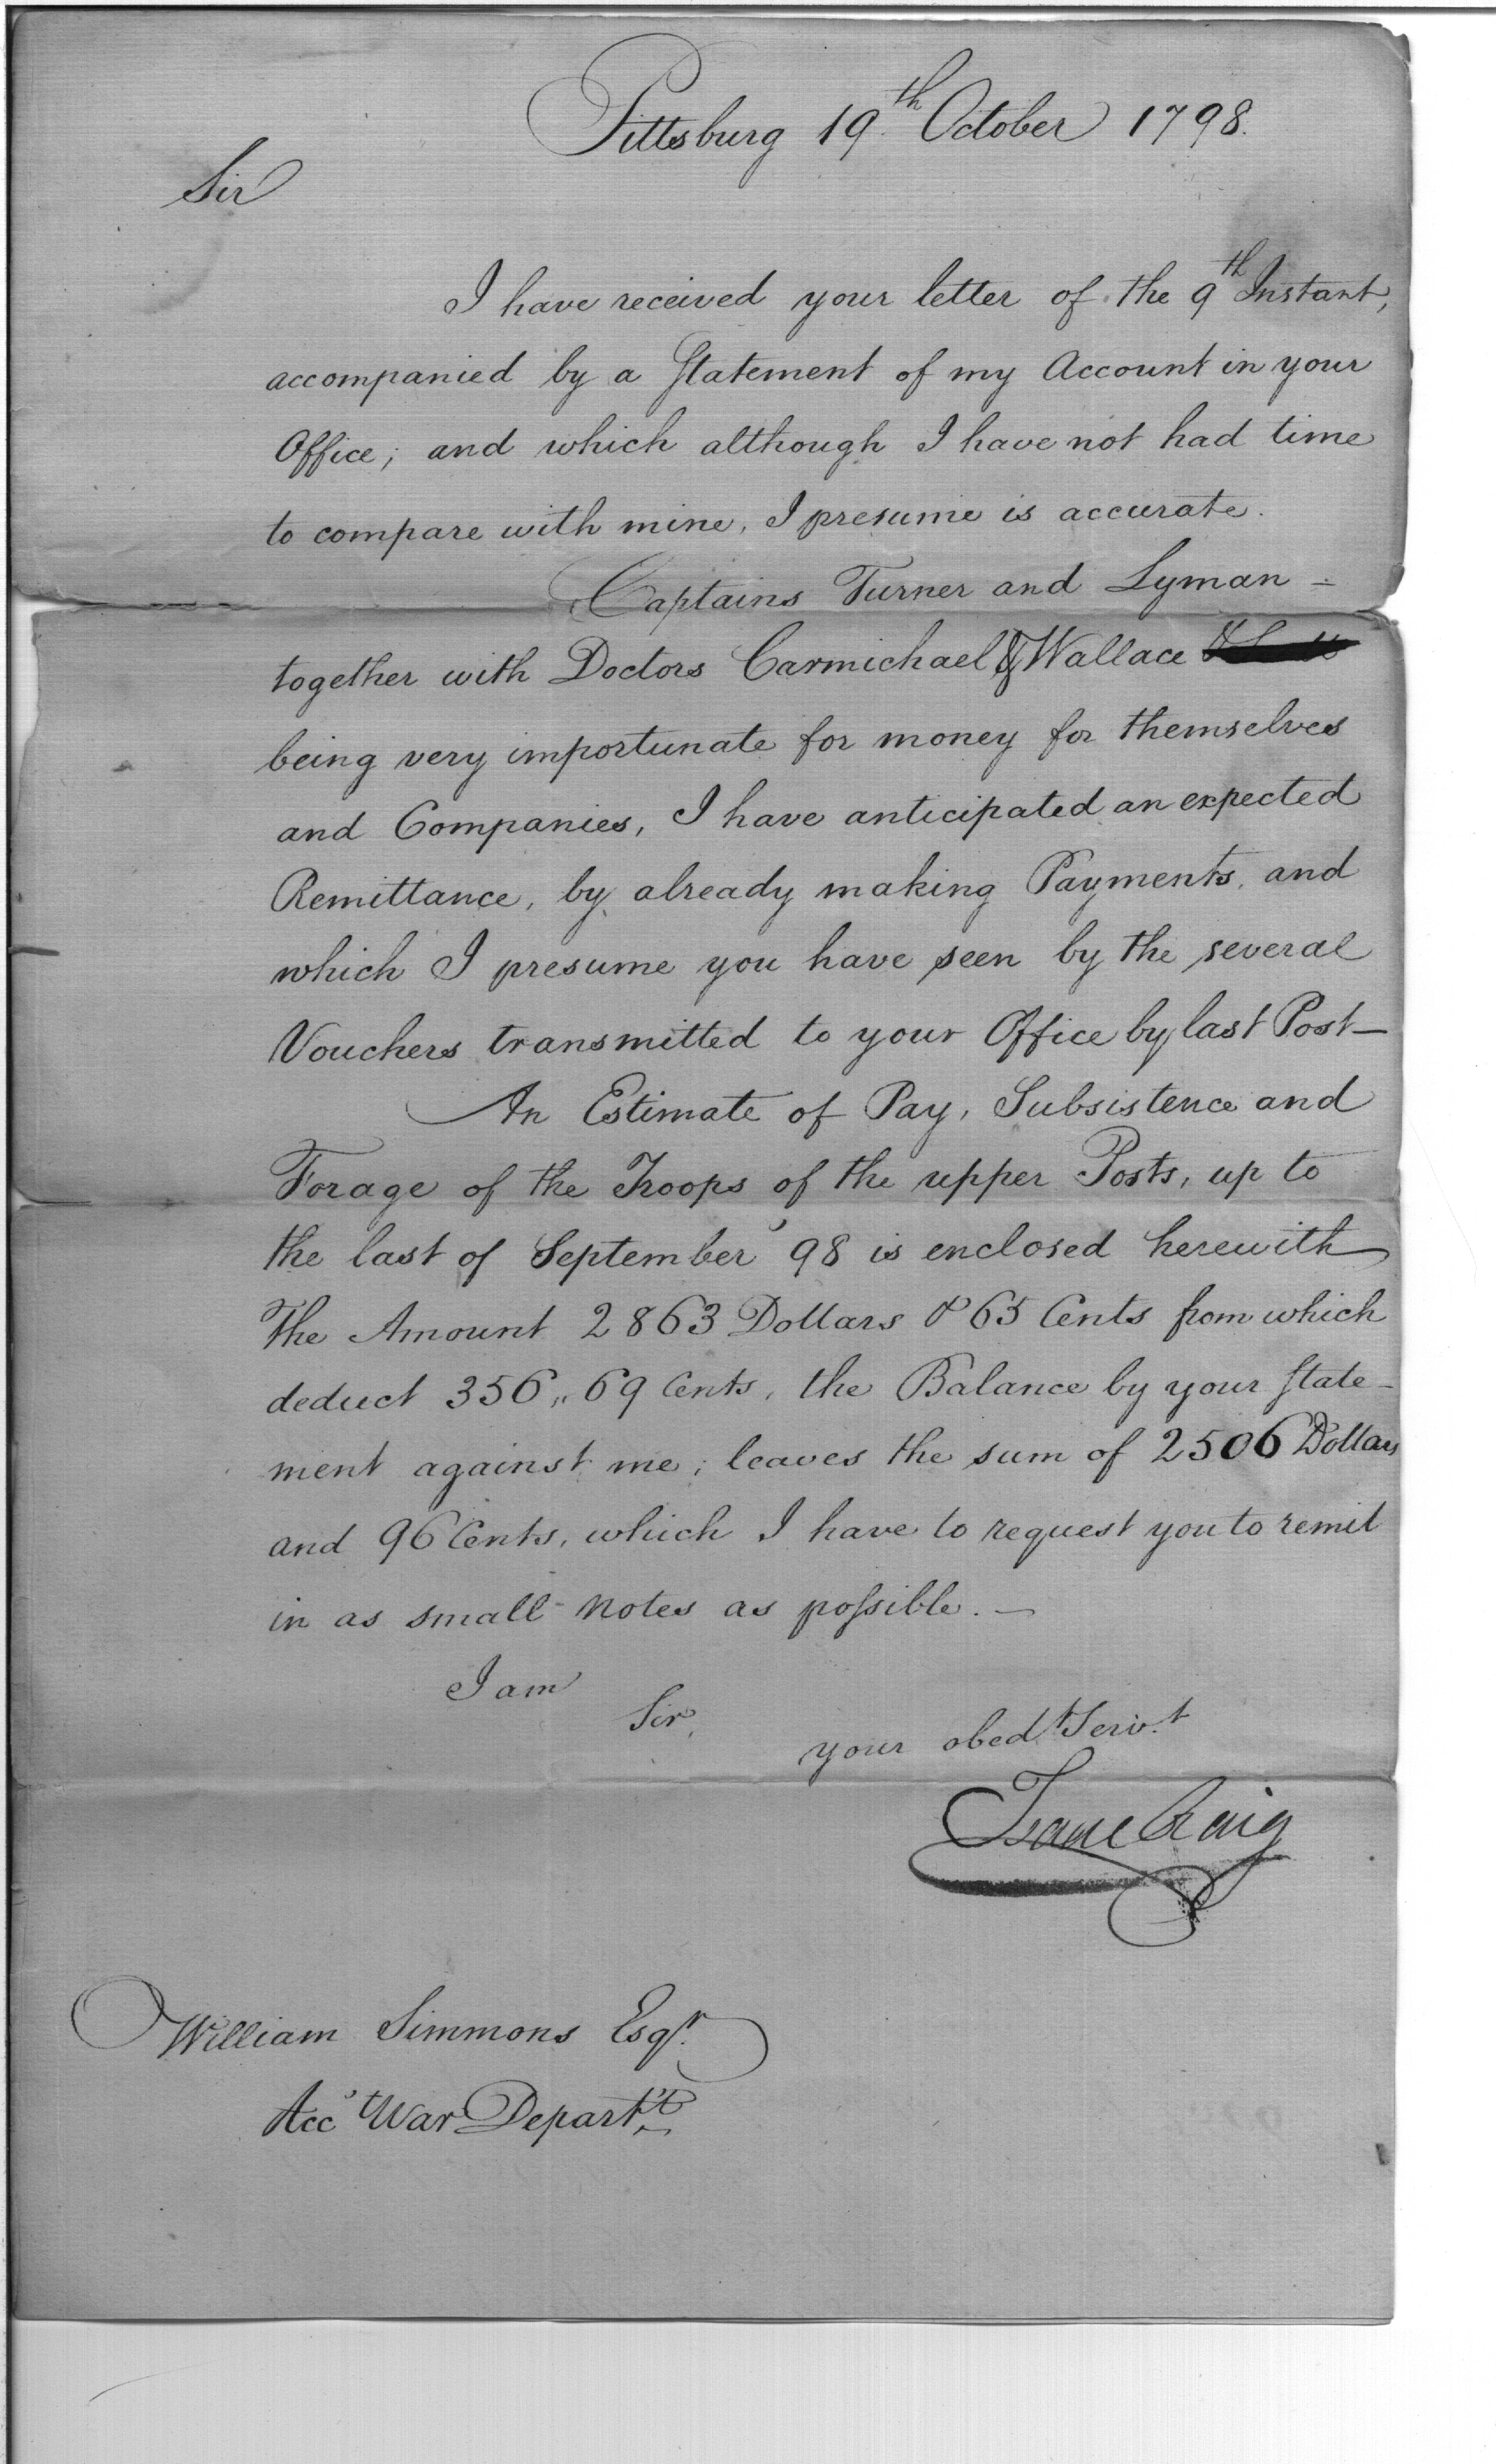 Pittsburg 19th October 1798.
Sir
I have received your letter of the 9th Instant,
accompanied by a Statement of my Account in your
Office; and which although I have not had time
to compare with mine, I presume is accurate.
Captains Turner and Lyman -
together with Doctors Carmichael & Wallace
being very importunate for money for themselves
and Companies, I have anticipated an expected
Remittance, by already making Payments, and
which I presume you have seen by the several
Vouchers transmitted to your Office by last Post—
An Estimate of Pay, Subsistence and
Forage of the Troops of the upper Posts, up to
the last of September '98 is enclosed herewith
The Amount 2863 Dollars & 65 Cents from which
deduct 356,, 69 Cents, the Balance by your State-
ment against me; leaves the sum of 2506 Dollars
and 96 Cents, which I have to request you to remit
in as small notes as possible. —
I am
Sir,
your obedt Servt
Isaac Craig
William Simmons Esqr.
Acct War Departt